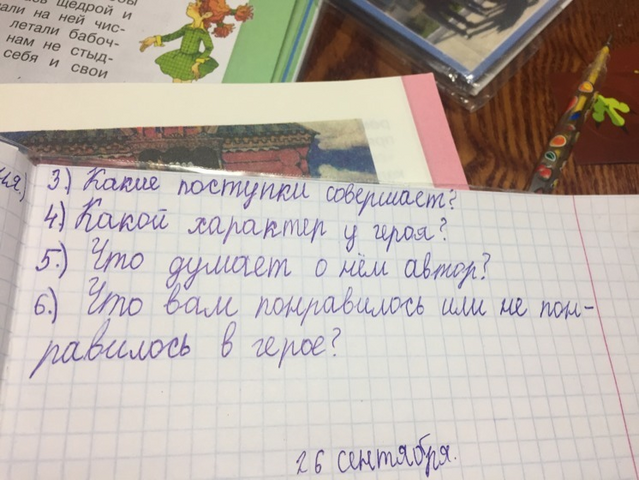 щедрой и
на ней чис-
летали бабоч-
нам не стыд-
себя и свои
3.) Какие поступки совершает?
4.) Какой характер у героя?
5.) Что думает о нём автор?
6.) Что вам понравилось или не пон-
равилось в герое?
26 сентября.